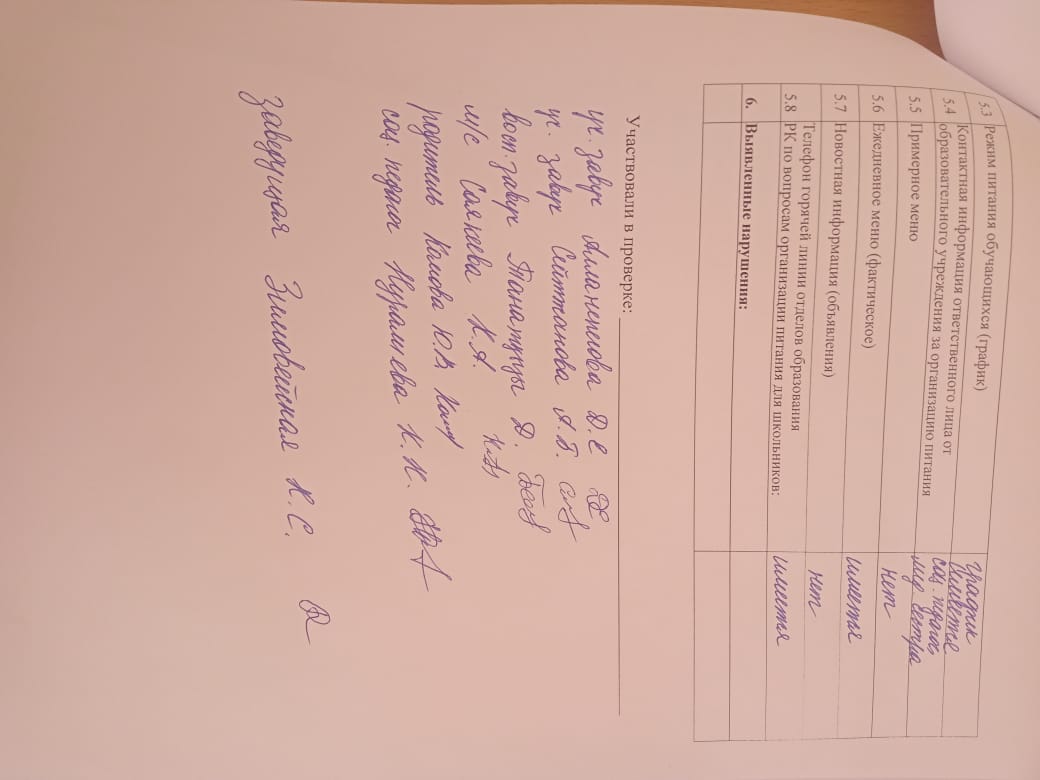 5.3 Режим питания обучающихся (график) график имеется
5.4 Контактная информация ответственного лица от
образовательного учреждения за организацию питания соц. педагог мед сестра
5.5 Примерное меню нет
5.6 Ежедневное меню (фактическое) имеется
5.7 Новостная информация (объявления) нет
Телефон горячей линии отделов образования
5.8 РК по вопросам организации питания для школьников: имеется
6. Выявленные нарушения:
Участвовали в проверке:
уч. завуч Д.Е
уч. завуч А.Б.
восп. завуч Д.
м/с К.А.
родитель Ю.В.
соц. педагог К.Н.
Заведующая К.С.